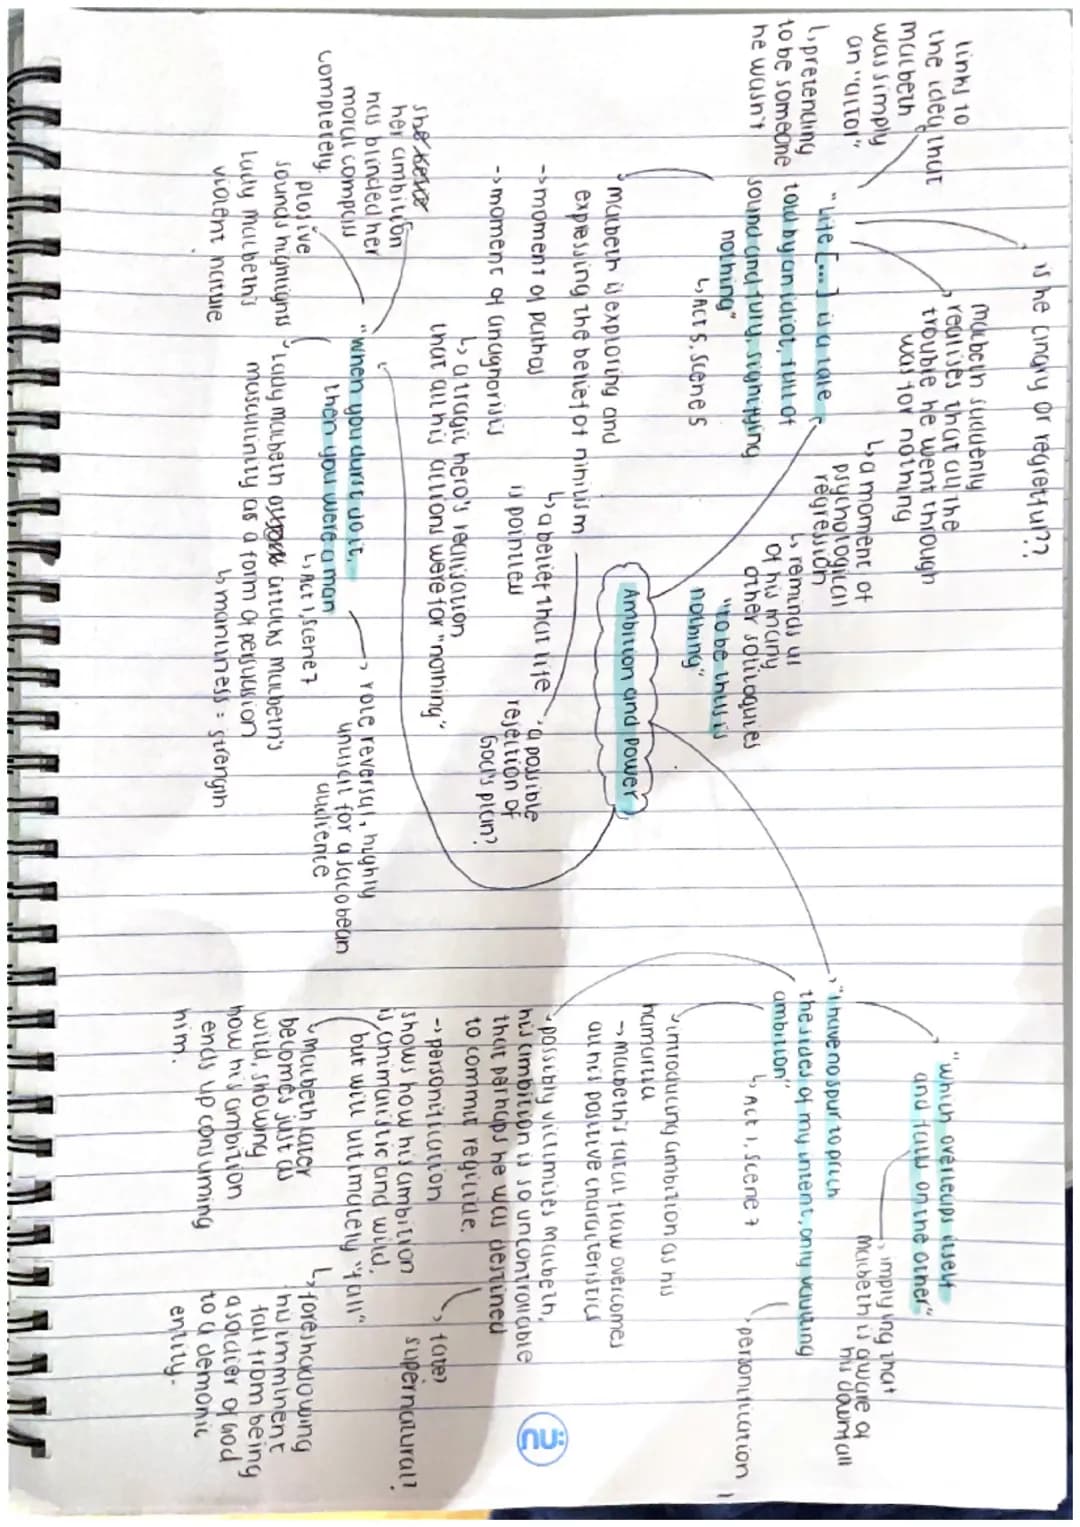 is he angry or regretful??
links to
the idea that
macbeth
was simply
an "actor"
↳ pretending
to be someone
he wasn't
macbeth suddenly
realises that all the
trouble he went through
was for nothing
↳ a moment of
psychological
regression
↳ reminds us
of his many
other soliloquies
"to be thus is
nothing"
"Life [...] is a tale
told by an idiot, full of
sound and fury, signifying
nothing"
↳ Act 5, scene 5
macbeth is exploring and
expressing the belief of nihilism
↳ a belief that life
is pointless
a possible
rejection of
God's plan?
-> moment of pathos
-> moment of anagnorisis
↳ a tragic hero's realisation
that all his actions were for "nothing"
Ambition and Power
"when you durst do it,
then you were a man
↳ Act 1, scene 7
she
her ambition
has blinded her
moral compass
completely.
plosive
sounds highlights
lady macbeth's
violent nature
lady macbeth attacks macbeth's
masculinity as a form of persuasion
↳ manliness = strength
role reversal, highly
unusual for a Jacobean
audience
"which o'erleaps itself
and falls on the other"
implying that
macbeth is aware of
his downfall
"I have no spur to prick
the sides of my intent, only vaulting
ambition"
↳ Act 1, scene 7
personification
introducing ambition as his
hamartia
-> macbeth's fatal flaw overcomes
all his positive characteristics
possibly victimises macbeth,
his ambition is so uncontrollable
that perhaps he was destined
to commit regicide.
fate?
supernatural?
-> personification
shows how his ambition
is animalistic and wild,
but will ultimately "fall"
macbeth later
becomes just as
wild, showing
how his ambition
ends up consuming
him.
↳ foreshadowing
his imminent
fall from being
a soldier of god
to a demonic
entity.